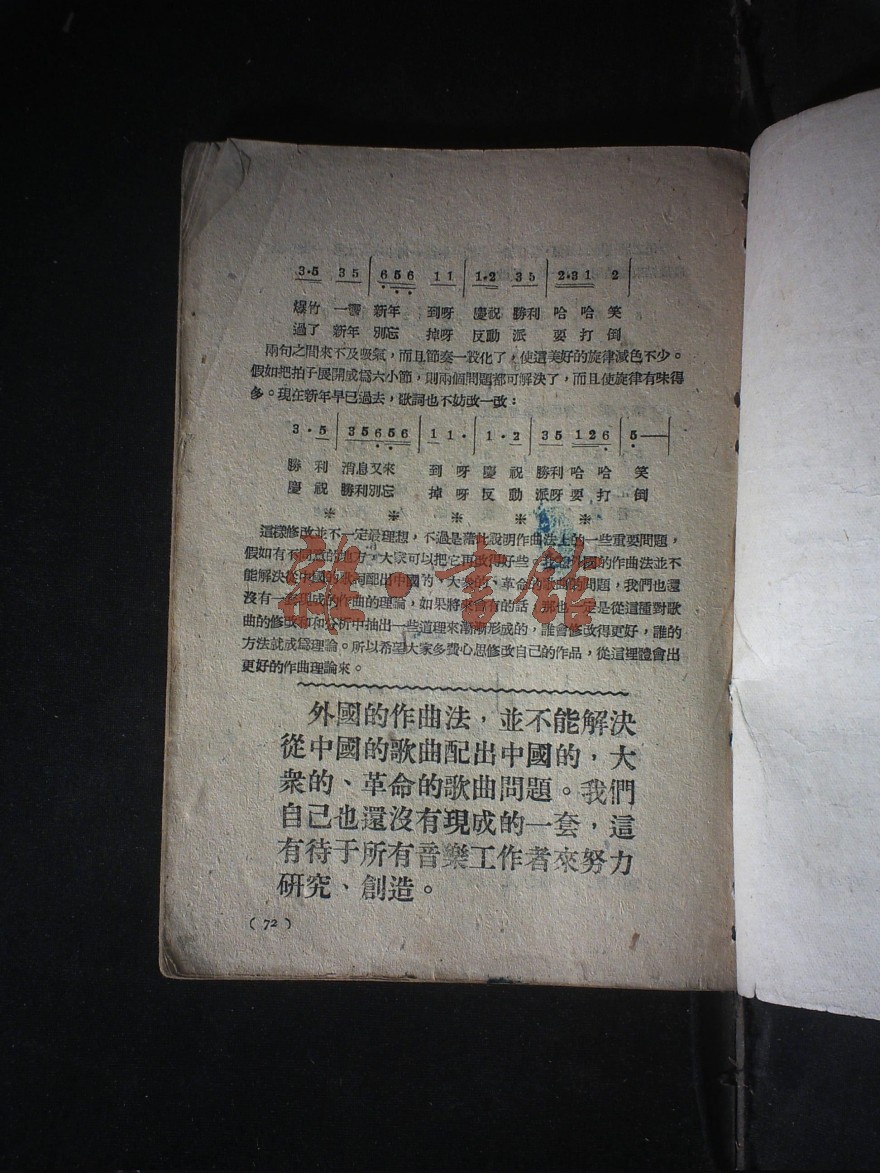 3·5 3 5 | 6 5 6 1 1 | 1·2 3 5 | 2·3 1 2 |
爆竹 一響 新年 到呀 慶祝 勝利 哈 哈 笑
過了 新年 別忘 掉呀 反動 派 要 打 倒
兩句之間來不及吸氣，而且節奏一般化了，使這美好的旋律減色不少。
假如把拍子展開成爲六小節，則兩個問題都可解決了，而且使旋律有味得
多。現在新年早已過去，歌詞也不妨改一改：
3·5 | 3 5 6 5 6 | 1 1· | 1·2 | 3 5 1 2 6 | 5—
勝利 消息又來 到 呀 慶 祝 勝利 哈 哈 笑
慶 祝 勝利別忘 掉 呀 反 動 派呀 要 打 倒
※ ※ ※ ※ ※
這樣修改並不一定最理想，不過是藉此說明作曲法上的一些重要問題，
假如有不同意的地方，大家可以把它再改得好些。我想外國的作曲法並不
能解決從中國的歌詞配出中國的、大衆的、革命的歌曲的問題，我們也還
沒有一套現成的作曲的理論，如果將來會有的話，那也一定是從這種對歌
曲的修改和和分析中抽出一些道理來漸漸形成的，誰會修改得更好，誰的
方法就成爲理論。所以希望大家多費心思修改自己的作品，從這裡體會出
更好的作曲理論來。
外國的作曲法，並不能解決
從中國的歌曲配出中國的，大
衆的、革命的歌曲問題。我們
自己也還沒有現成的一套，這
有待于所有音樂工作者來努力
研究、創造。
（72）
雜·書館